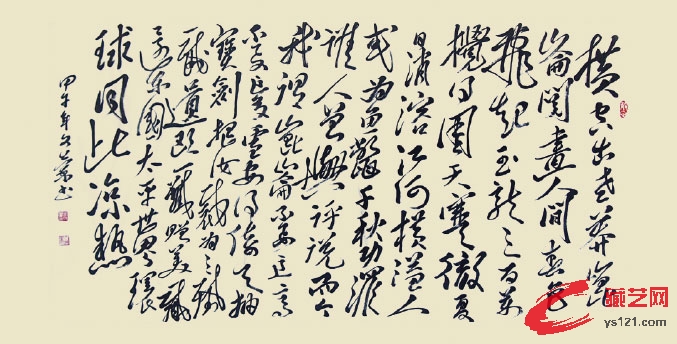 横空出世莽崑
崙阅尽人间春色
飛起玉龙三百万
搅得周天寒徹夏
日消溶江河横溢人
或为鱼鳖千秋功罪
谁人曾与评说而今
我谓崑崙不要这高
不要这多雪安得倚天抽
宝剑把汝裁为三截
一截遗欧一截赠美一截
还东国太平世界环
球同此凉热
甲午年
藏艺网
ys121.com